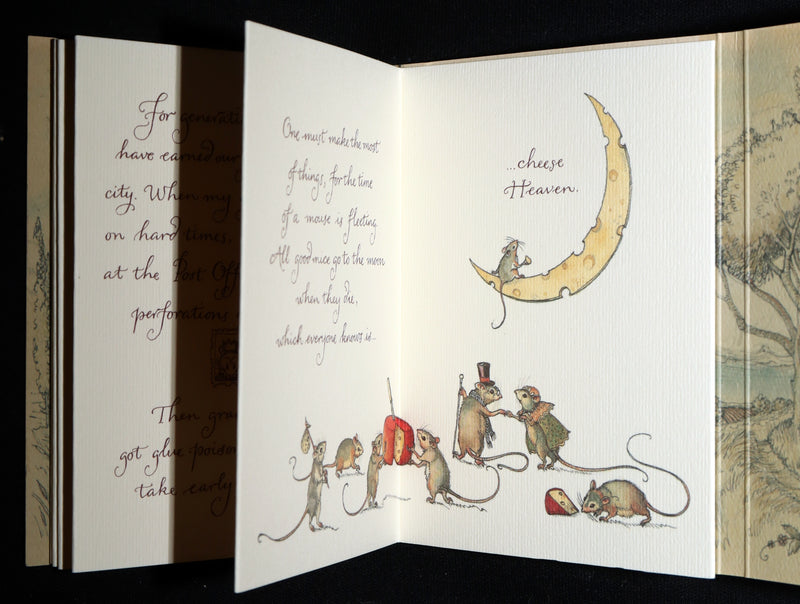 For generati
have earned our
city. When my
on hard times.
at the Post Off
perforations
Then gra
got glue poison
take early
One must make the most
of things, for the time
of a mouse is fleeting.
All good mice go to the moon
when they die,
which everyone knows is...
...cheese
Heaven.